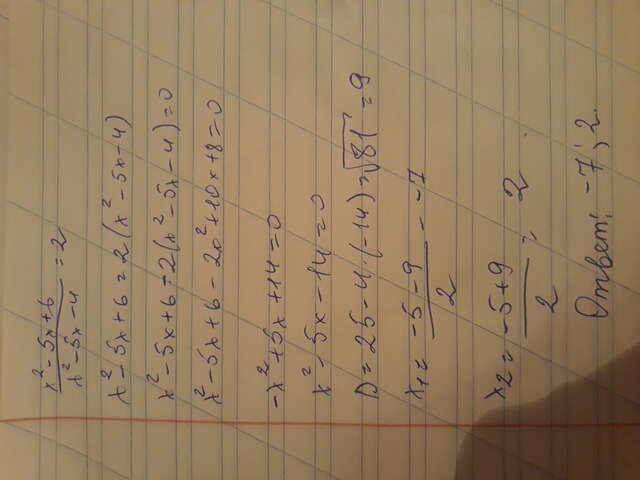 x² - 5x + 6 / x² - 5x - 4 = 2
x² - 5x + 6 = 2(x² - 5x - 4)
x² - 5x + 6 - 2(x² - 5x - 4) = 0
x² - 5x + 6 - 2x² + 10x + 8 = 0
-x² + 5x + 14 = 0
x² - 5x - 14 = 0
D = 25 - 4 · (-14) = √81 = 9
x₁ = -5 - 9 / 2 = -7
x₂ = -5 + 9 / 2 = 2
Ответ: -7; 2.